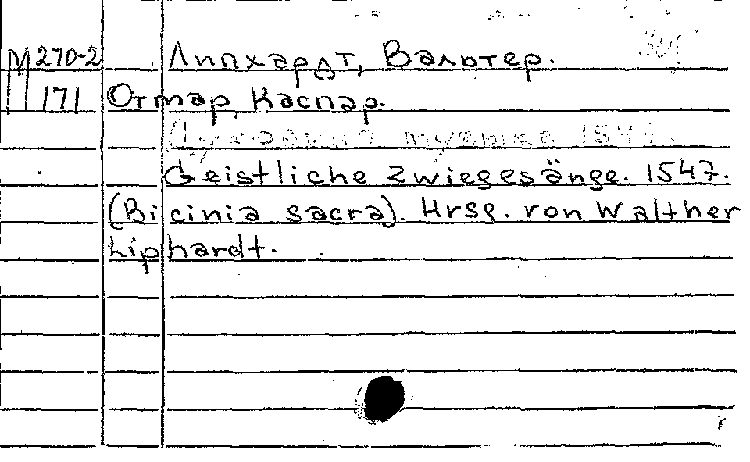 М 270-2 Липхардт, Вальтер.
171 Отмар, Каспар.
Духовная музыка 154
Geistliche Zwiegesänge. 1547.
(Bicinia sacra). Hrsg. von Walther
Liphardt.